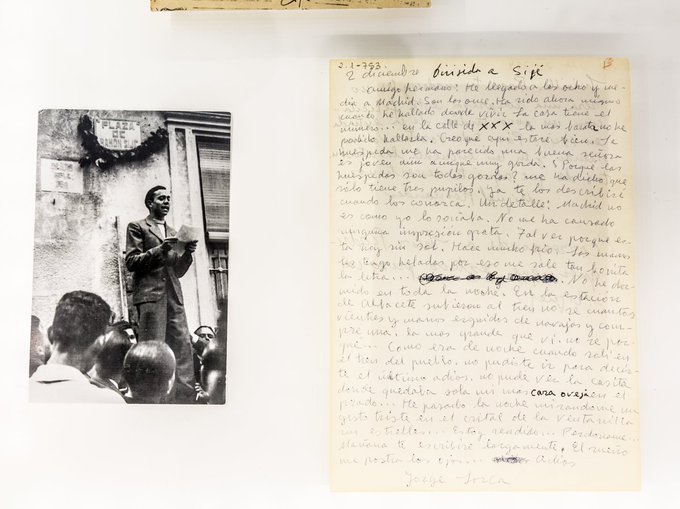 PLAZA
DE
RAMÓN SIJÉ
2.1-753
2 diciembre Dirigida a Sijé
amigo hermano: He llegado a las ocho y me-
dia a Madrid. Son las once. Ha sido ahora mismo
cuando he hallado donde vivir. La casa tiene el
número... en la calle de XXX la mas barata no he
podido hallarla. Creo que aquí estaré bien. La
huéspeda me ha parecido una buena señora
es joven aun aunque muy gorda. ¿Porqué las
huéspedas son todas gordas? me ha dicho que
sólo tiene tres pupilos, ya te los describiré
cuando los conozca. Un detalle: Madrid no
es como yo lo soñaba. No me ha causado
ninguna impresión grata. Tal vez porque es-
ta hoy sin sol. Hace mucho frío. Las manos
las tengo heladas por eso me sale tan bonita
la letra... No he dor-
mido en toda la noche. En la estación
de Albacete subieron al tren no sé cuantos
vientres y manos erguidos de navajas y com-
pré una, la mas grande que vi, no se por-
qué... Como era de noche cuando salí en
el tren del pueblo, no pudiste ir para decir-
te el último adios, no pude ver la casita
donde quedaba sola mi mas cara oveja en el
prado... He pasado la noche mirandome un
gesto triste en el cristal de la ventanilla
sin estrellas... Estoy rendido... Perdoname...
Mañana te escribiré largamente. El sueño
me postra los ojos... Adios
Jorge Lorca